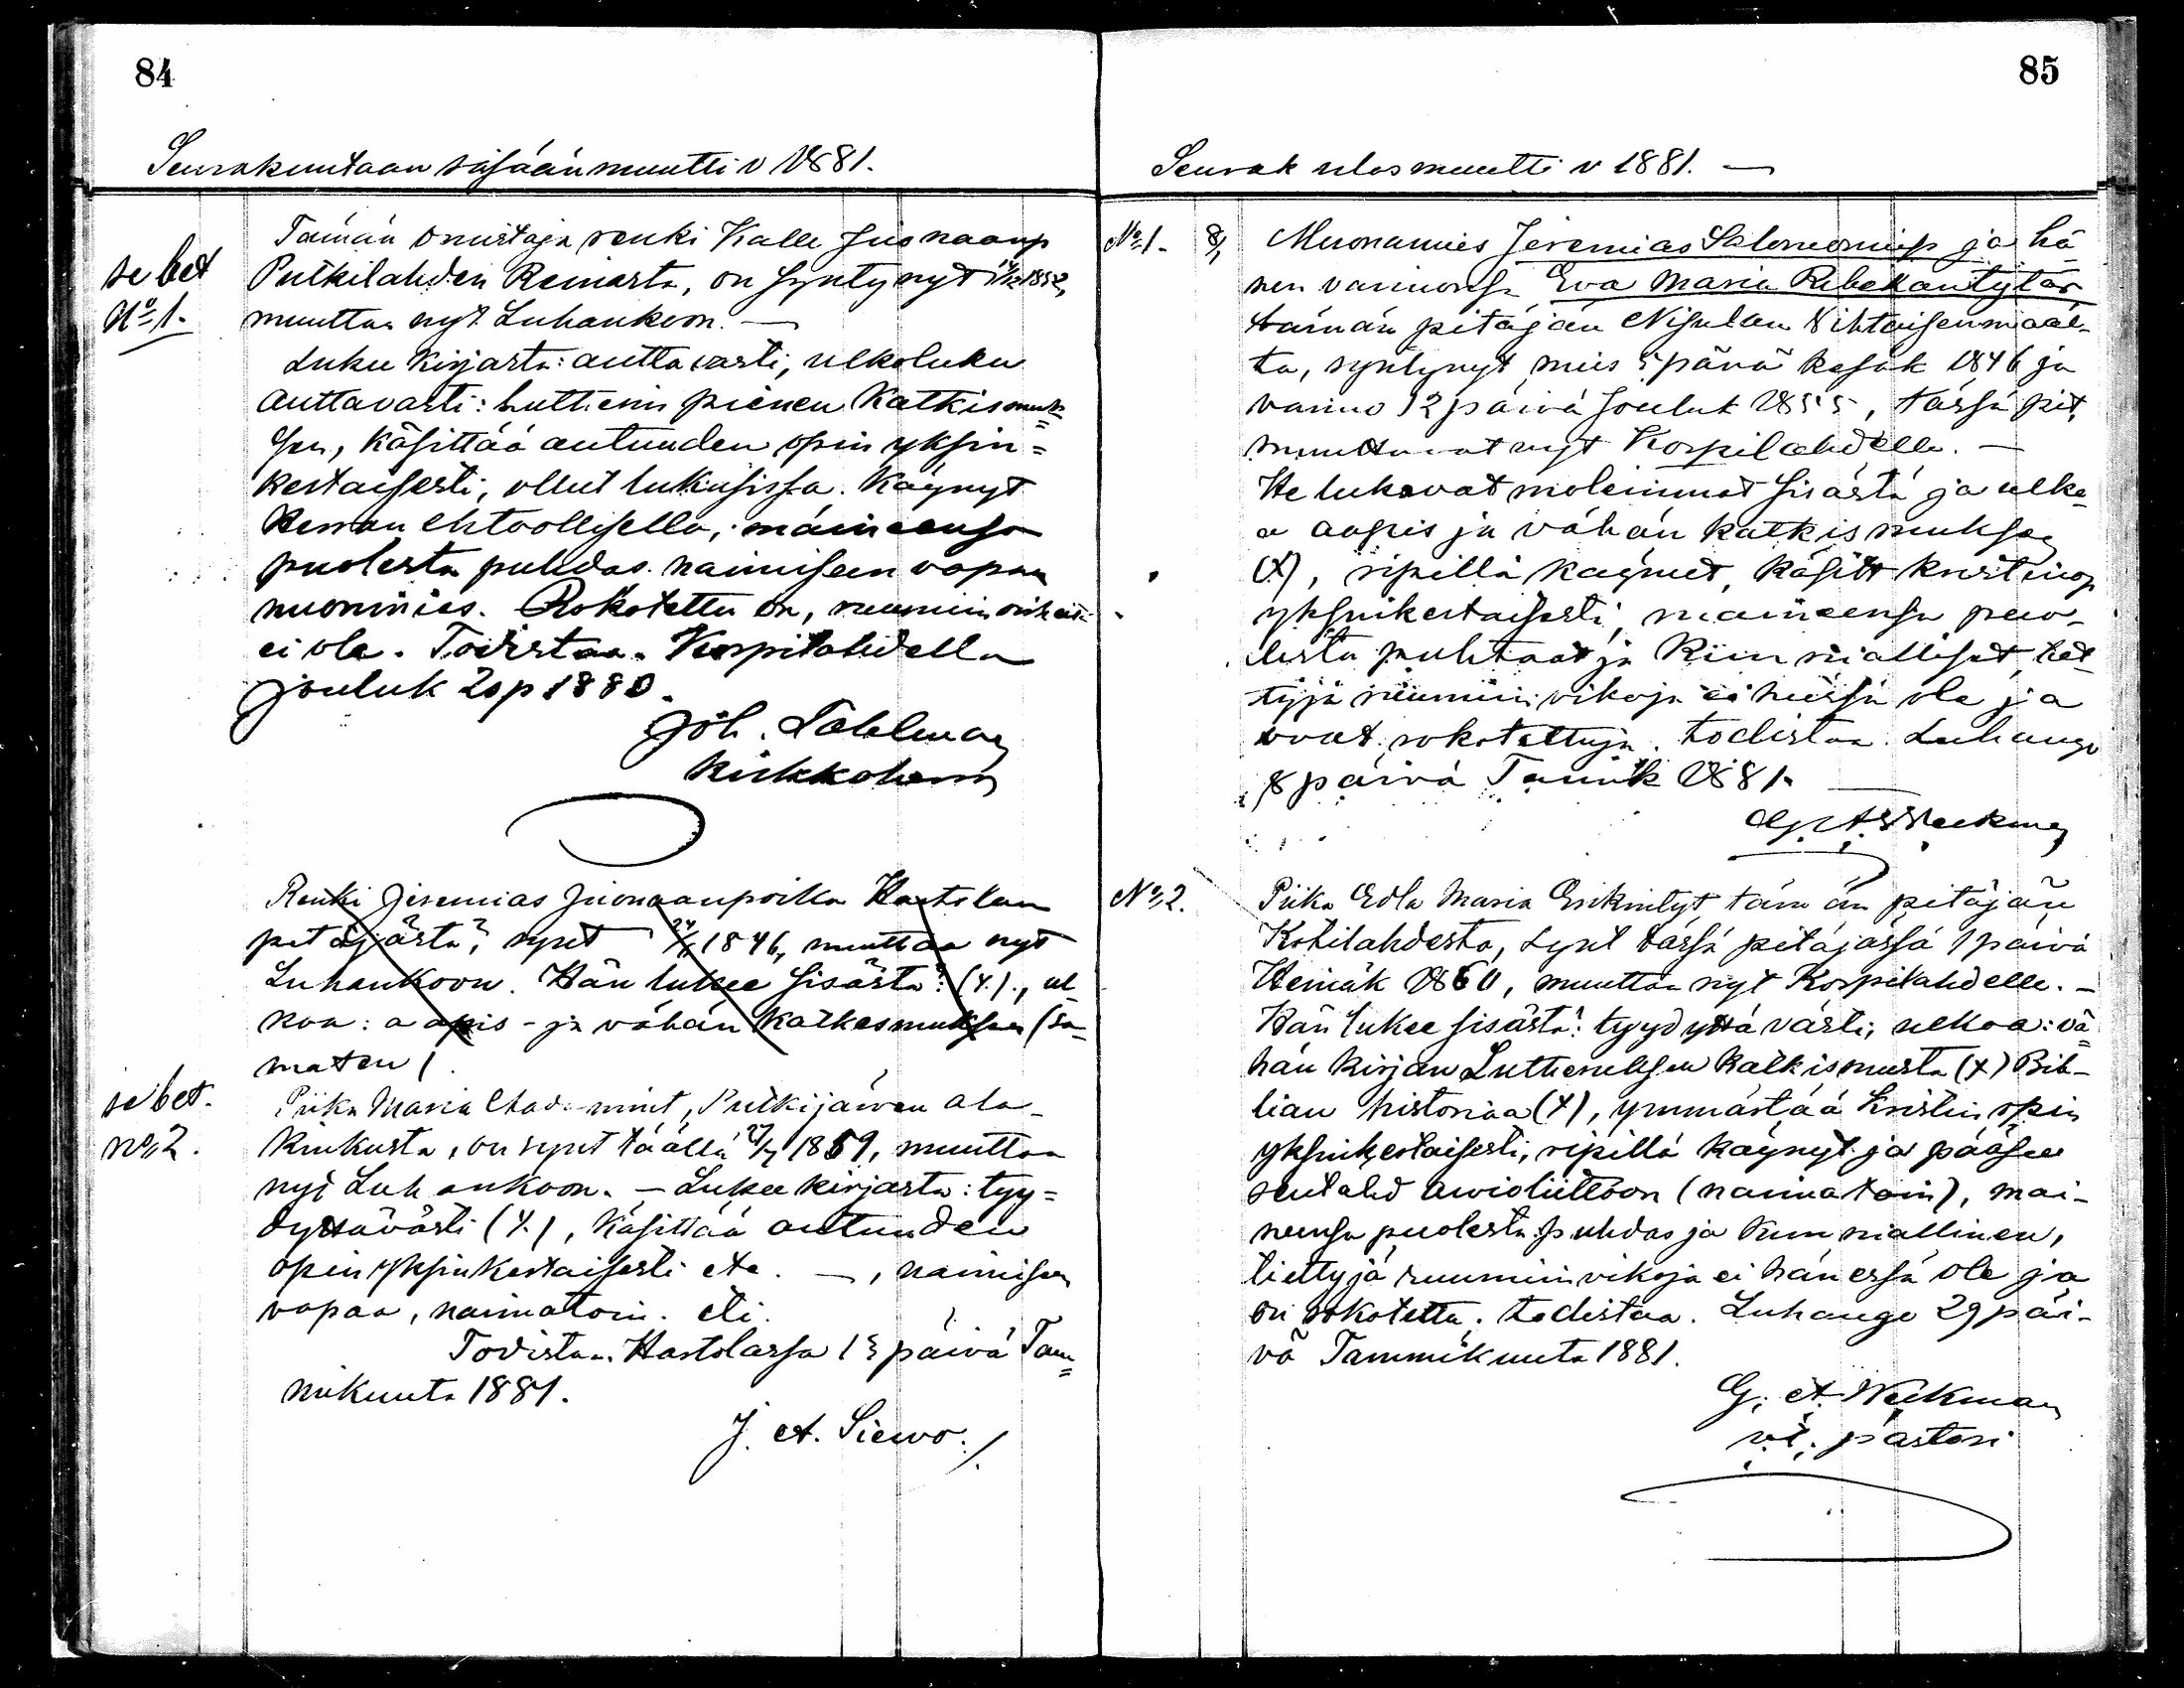 84
Seurakuntaan sisäänmuutti v 1881.
Tämän omistaja renki Kalle Juonaanp
se bet
Putkilahden Reinasta, on syntynyt 1852,
No 1.
muuttaa nyt Luhankoon. —
Lukee kirjasta: auttavasti, ulkoluku
auttavasti: Lutherin pienen Katkismuk=
sen, käsittää autuuden opin yksin=
kertaisesti, ollut lukusissa. Käynyt
Herran ehtoollisella, maineensa
puolesta puhdas. naimiseen vapaa
nuorimies. Rokotettu on, ruumiin
ei ole. Todistaa. Korpilahdella
jouluk 20 p 1880.
Joh. Tahlman
Kirkkoherra
Renki Jeremias Juonaanpoika Hartolan
pitäjästä, synt 24/ 1846, muuttaa nyt
Luhankoon. Hän lukee sisästä: (x)., ul-
koa: aapis- ja vähän katkesmuksen (sa-
maten)
se bet.
Piika Maria, Putkijärven ala-
no 2.
kinkusta, on synt täällä 27/7 1859, muuttaa
nyt Luhankoon. — Lukee kirjasta: tyy=
dyttävästi (x.), käsittää autuuden
opin yksinkertaisesti etc. —, naimiseen
vapaa, naimatoin. etc.
Todistaa. Hartolassa 15 päivä Tam=
mikuuta 1881.
J. A. Siewo./.
85
Seurak ulosmuutti v 1881. —
No 1. 8, Muonamies Jeremias Salomoninp ja hä-
nen vaimonsa Eva Maria Rebekantytär
tämän pitäjän Nisulan Vihtaisenmaal-
ta, syntynyt mies 5 päivä kesäk 1846 ja
vaimo 12 päivä jouluk 1855, tässä pit,
muuttavat nyt Korpilahdelle. —
He lukevat molemmat sisästä ja ulko-
a aapis ja vähän katkismuksen
(x), ripillä käyneet, käsitt kristinop
yksinkertaisesti, maineensa puo-
lesta puhtaat ja kunnialliset, tet-
tyjä ruumiin vikoja ei heissä ole ja
ovat rokotettuja. todistaa. Luhango
8 päivä Tamik 1881.
G. A. Weckman
No 2.
Piika Edla Maria Erikintyt, tämän pitäjän
Kotilahdesta, synt tässä pitäjässä 1 päivä
Heinäk 1860, muuttaa nyt Korpilahdelle. —
Hän lukee sisästä: tyydyttävästi, ulkoa: vä-
hän kirjan Lutheruksen katkismusta (x) Bib-
lian historiaa (x), ymmärtää kristin opin
yksinkertaisesti, ripillä käynyt ja pääsee
sentähd awioliittoon (naimatoin), mai-
neensa puolesta puhdas ja kunniallinen,
tiettyjä ruumiin vikoja ei hänessä ole ja
on rokotettu. todistaa. Luhango 29 päi-
vä Tammikuuta 1881.
G. A. Weckman
vt. pastori